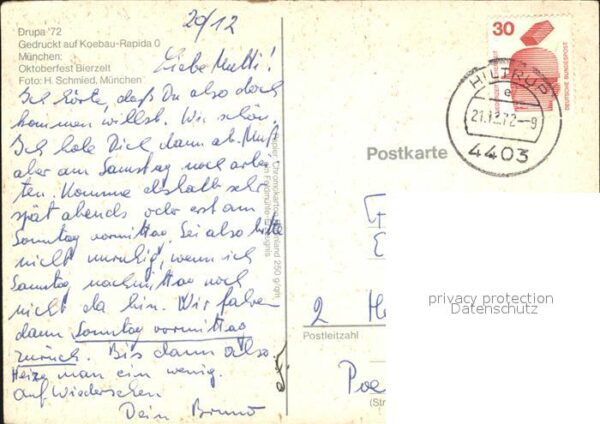 20/12
Drupa '72
Gedruckt auf Koebau-Rapida 0
München:
Oktoberfest Bierzelt
Foto: H. Schmied, München
Liebe Mutti!
Ich hörte, daß Du also doch
kommen willst. Wie schön.
Ich hole Dich dann ab. Muß
aber am Samstag noch arbei-
ten. Komme deshalb sehr
spät abends oder erst am
Sonntag vormittag. Sei also bitte
nicht unruhig, wenn ich
Samstag nachmittag noch
nicht da bin. Wir fahren
dann Sonntag vormittag
zurück. Bis dann also
Heize man ein wenig.
Auf Wiedersehen
Dein Bruno
30
DEUTSCHE BUNDESPOST
HILTRUP
e
21.12.72-9
4403
Postkarte
privacy protection
Datenschutz
2 H
Postleitzahl
Poe
(Str